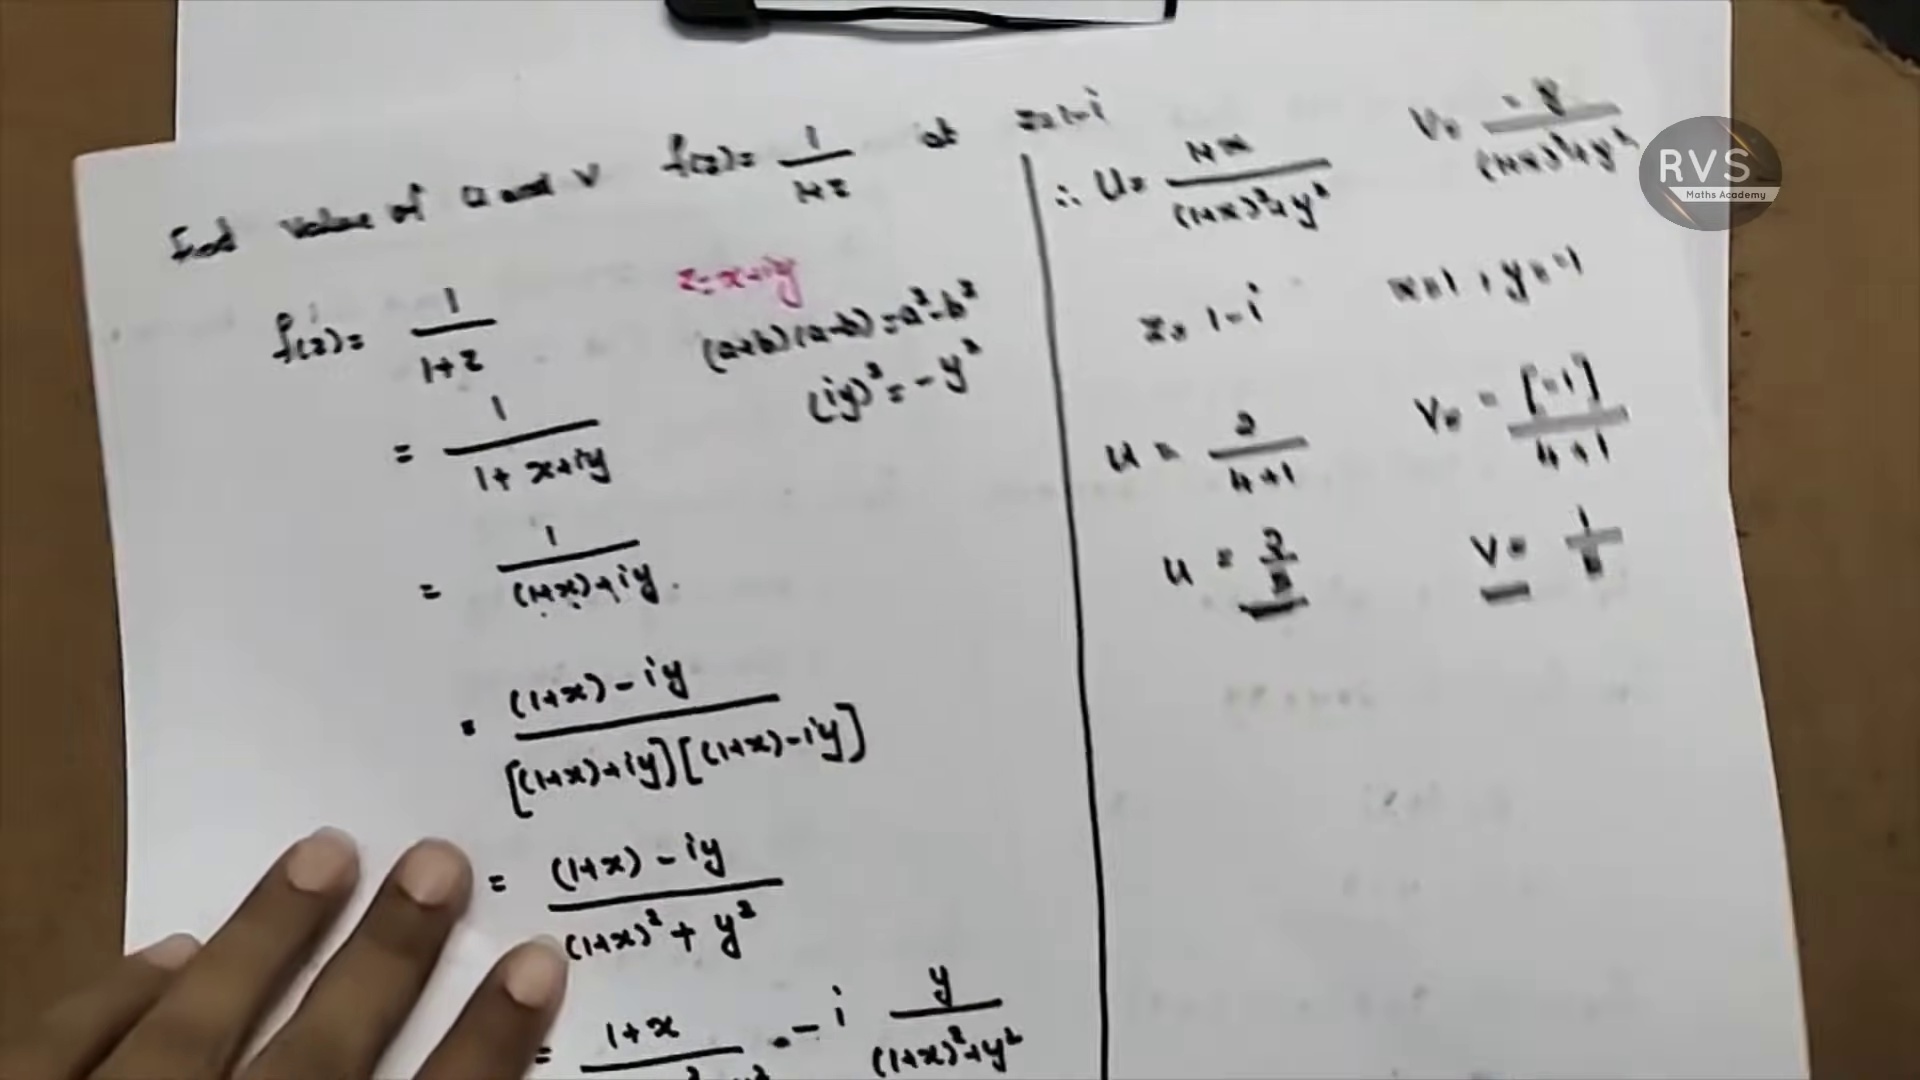 Find value of u and v f(z) = 1/1+z at z = 1-i
f(z) = 1/1+z
z = x+iy
(a+b)(a-b) = a²-b²
(iy)² = -y²
= 1/1+x+iy
= 1/(1+x)+iy.
= (1+x)-iy/[(1+x)+iy][(1+x)-iy]
= (1+x)-iy/(1+x)²+y²
= 1+x/ - i y/(1+x)²+y²
∴ U = 1+x/(1+x)²+y² V = -y/(1+x)²+y²
z = 1-i x=1, y=-1
u = 2/4+1 V = -[-1]/4+1
u = 2/5 V = 1/5
RVS
Maths Academy